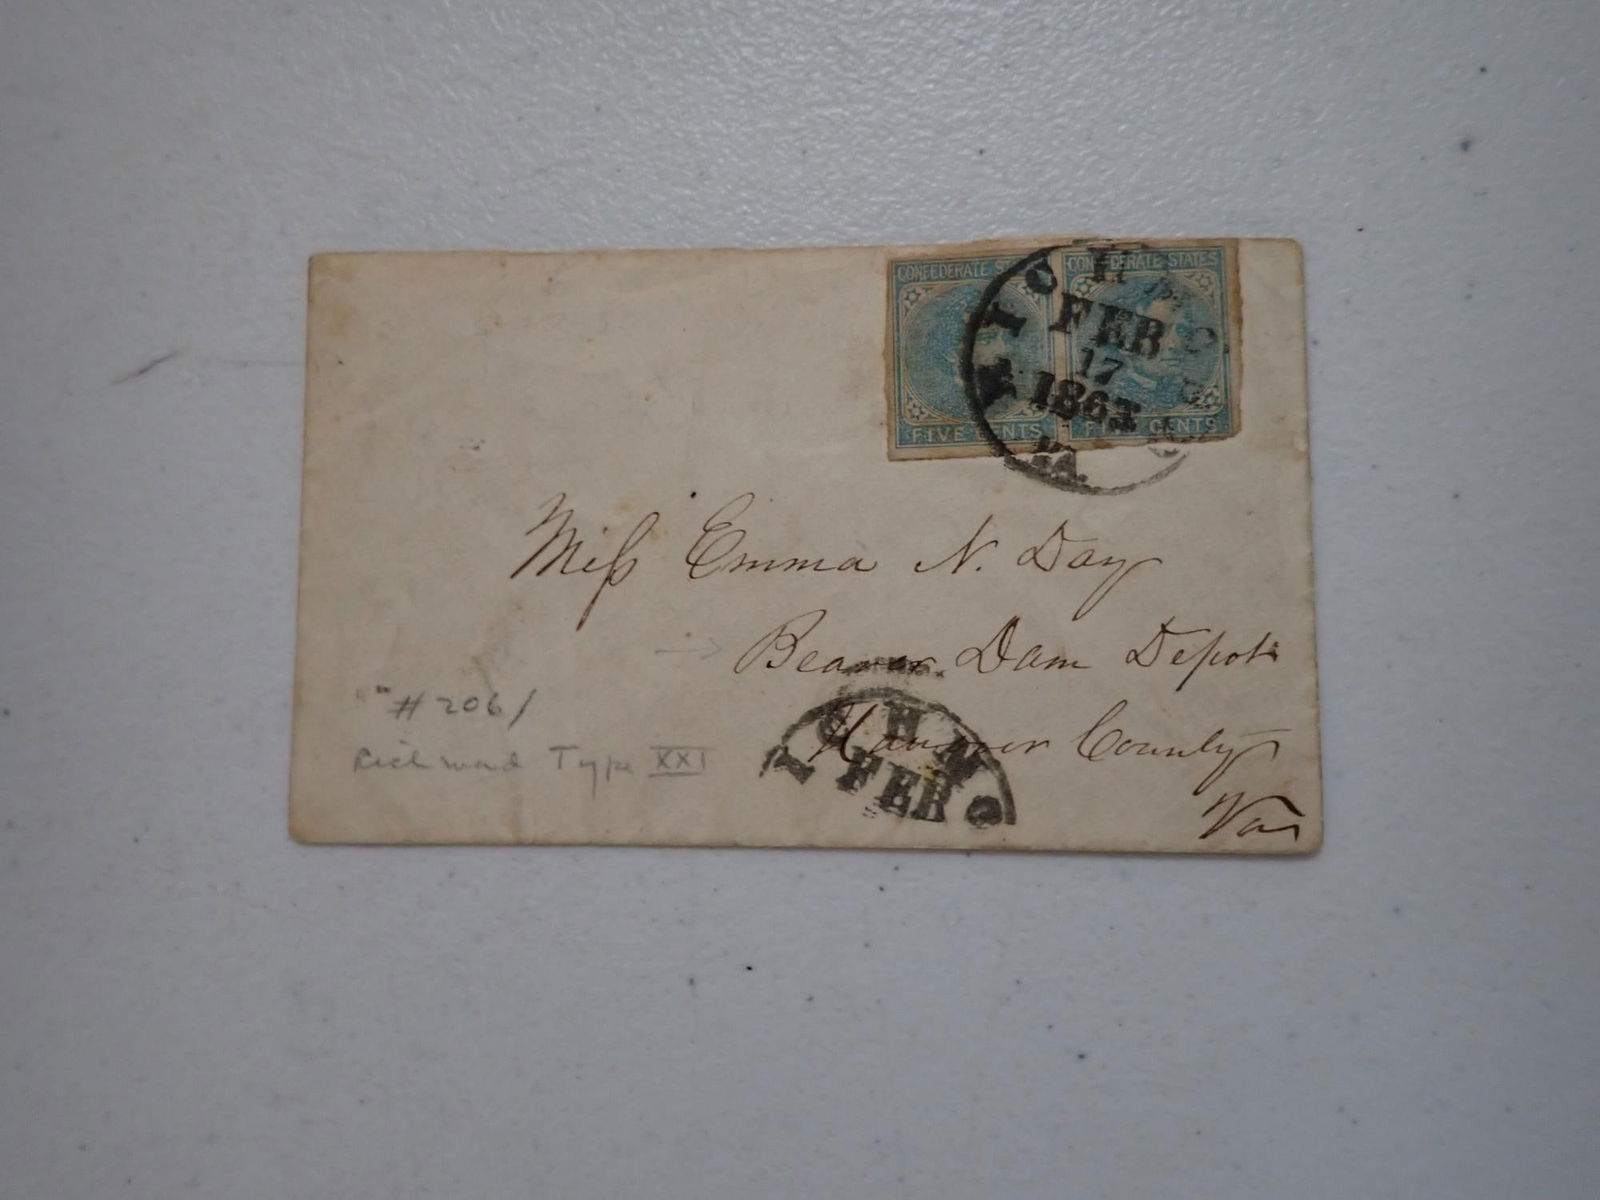 CONFEDERATE STATES CONFEDERATE STATES
FIVE CENTS FIVE CENTS
RICH
FEB
17
1863
VA.
Miss Emma N. Day
Beaver Dam Depot
Hanover County
Va
ICHMO
FEB
#2061
Richmond Type XXI